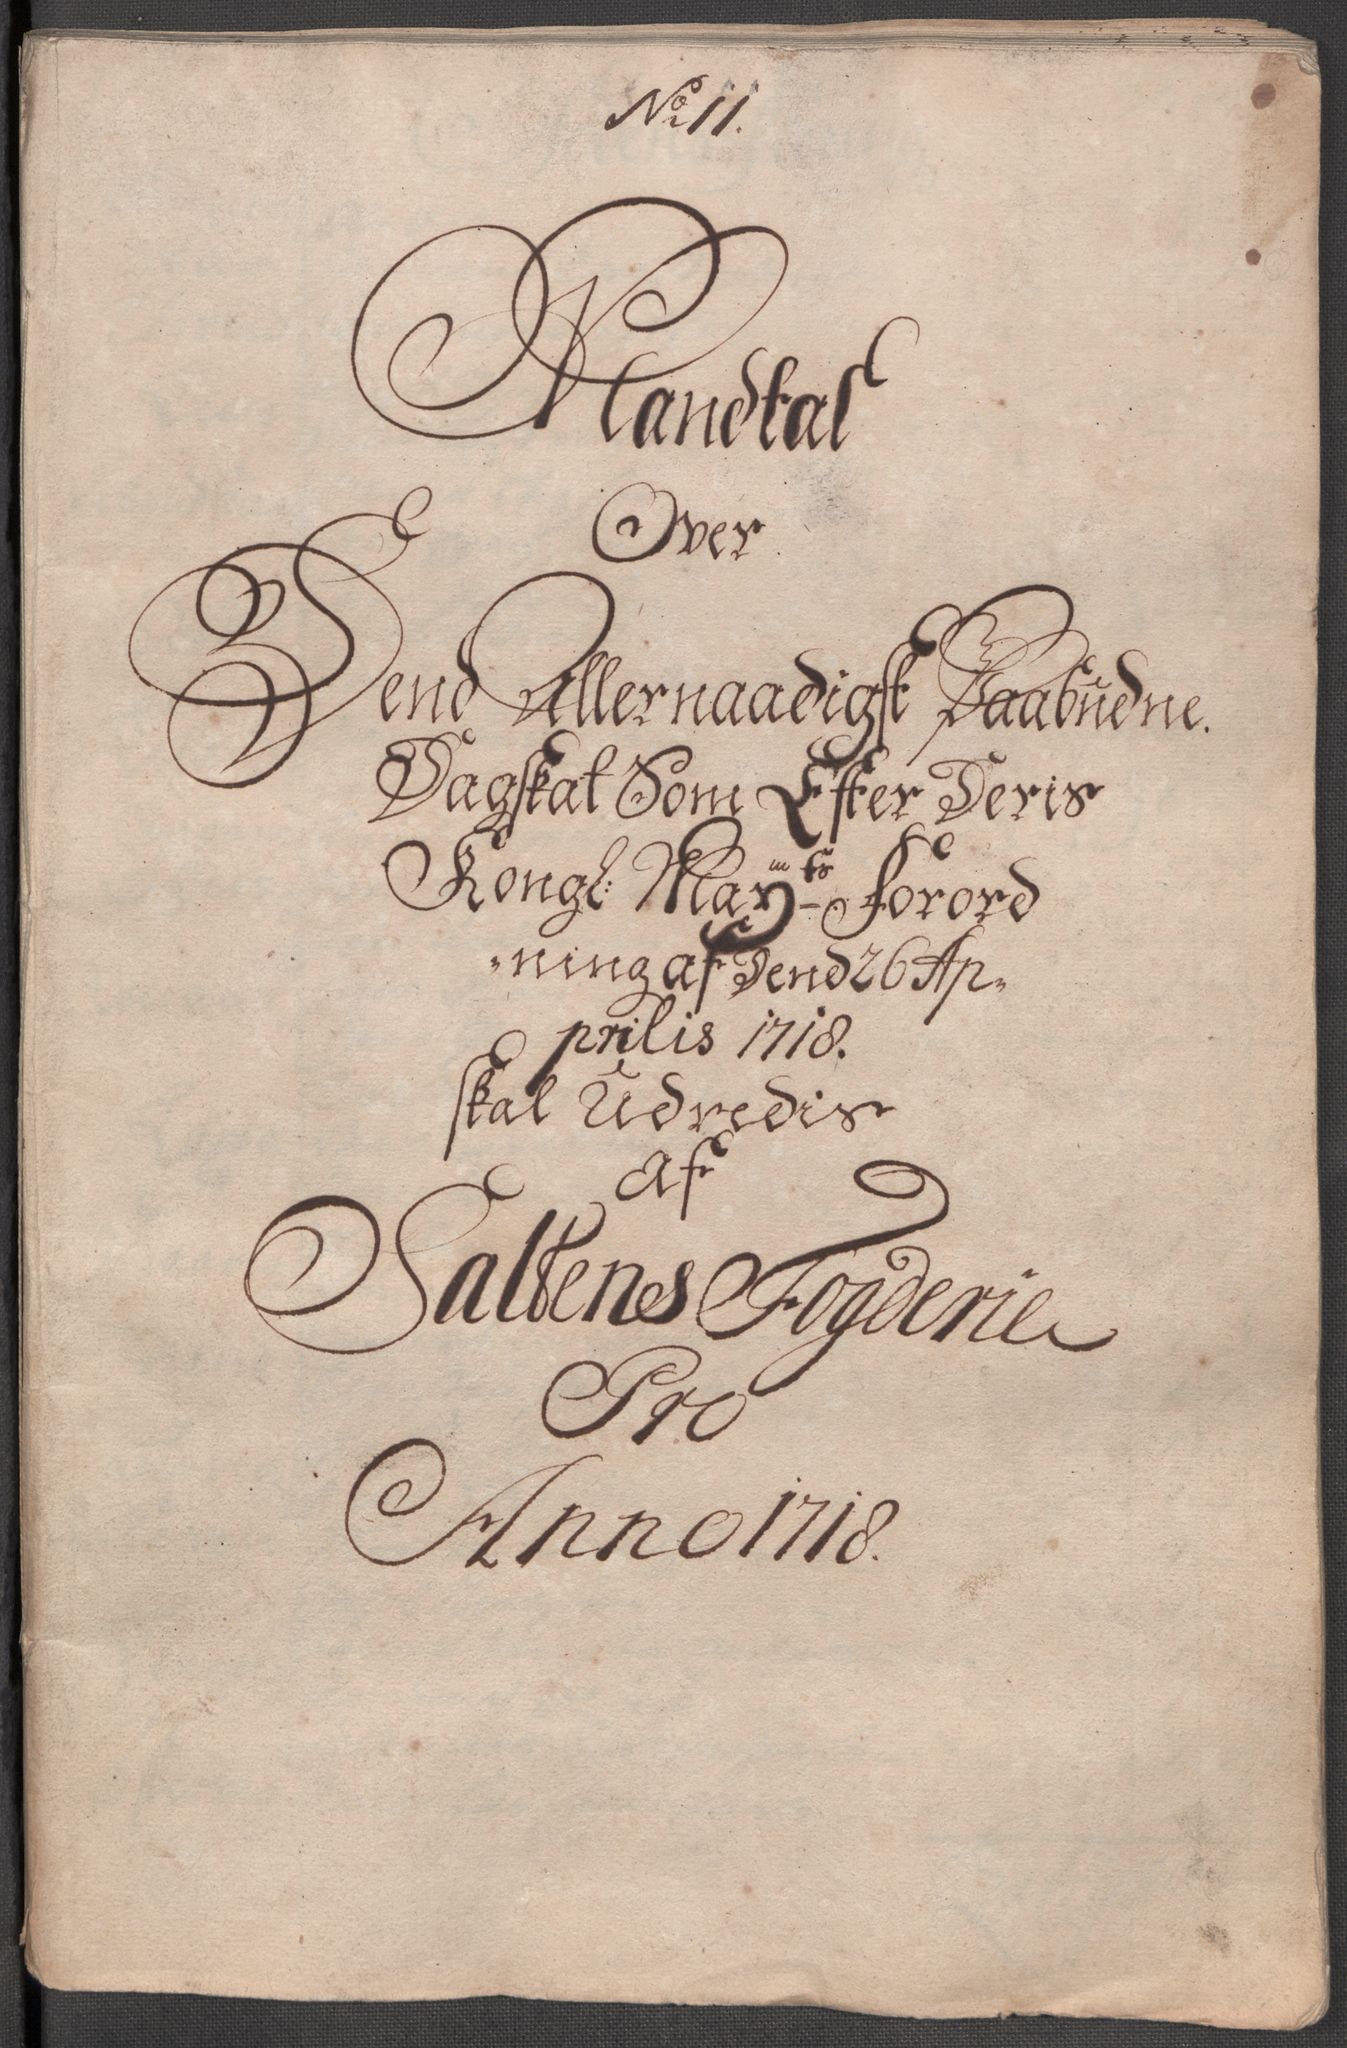 No 11.
Mandtal
Over
Dend Allernaadigst Paabudne.
Dagskat Som Efter Deris
Kongl: Mayts Forord
-ning af Dend 26 Ap-
prilis 1718.
skal Udredis
af
Saltens Fogderie
Pro
Anno 1718.